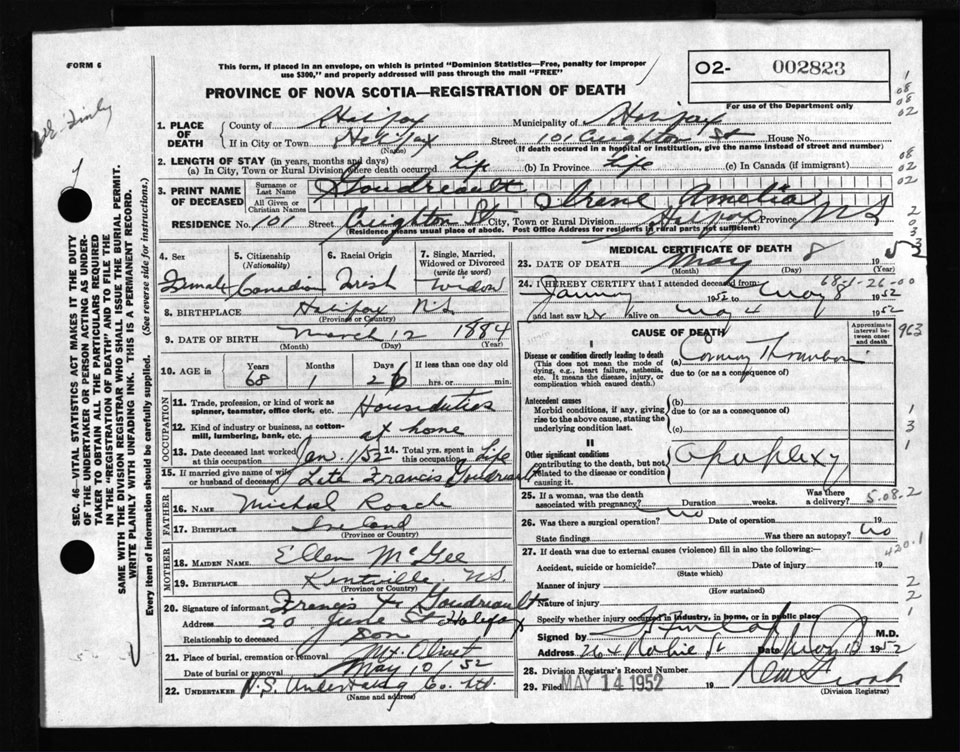 FORM 6
This form, if placed in an envelope, on which is printed "Dominion Statistics—Free, penalty for improper
use $300," and properly addressed will pass through the mail "FREE"
O2- 002823
PROVINCE OF NOVA SCOTIA—REGISTRATION OF DEATH
For use of the Department only
1. PLACE OF DEATH
County of Halifax Municipality of Halifax
If in City or Town Halifax Street 101 Creighton St House No.
(Name) (If death occurred in a hospital or institution, give the name instead of street and number)
2. LENGTH OF STAY (in years, months and days)
(a) In City, Town or Rural Division where death occurred Life (b) In Province Life (c) In Canada (if immigrant)
3. PRINT NAME OF DECEASED
Surname or Last Name Goudreault
All Given or Christian Names Irene Amelia
RESIDENCE No. 101 Street Creighton St. City, Town or Rural Division Halifax Province N S
(Residence means usual place of abode. Post Office Address for residents in rural parts not sufficient)
4. Sex Female
5. Citizenship (Nationality) Canadian
6. Racial Origin Irish
7. Single, Married, Widowed or Divorced (write the word) Widow
8. BIRTHPLACE Halifax N.S.
(Province or Country)
9. DATE OF BIRTH March 12 1884
(Month) (Day) (Year)
10. AGE in Years Months Days If less than one day old
68 1 26 hrs. or min.
OCCUPATION
11. Trade, profession, or kind of work as spinner, teamster, office clerk, etc. Houseduties
12. Kind of industry or business, as cotton-mill, lumbering, bank, etc. at home
13. Date deceased last worked at this occupation Jan. 1/52 14. Total yrs. spent in this occupation Life
15. If married give name of wife or husband of deceased Late Francis Goudreault
FATHER
16. NAME Michael Roach
17. BIRTHPLACE Ireland
MOTHER
18. MAIDEN NAME Ellen McGee
19. BIRTHPLACE Kentville, N.S.
(Province or Country)
20. Signature of informant Francis X Goudreault
Address 20 June St Halifax
Relationship to deceased Son
21. Place of burial, cremation or removal Mt. Olivet
Date of burial or removal May 10 /52
22. UNDERTAKER N.S. Undertaking Co. Ltd.
(Name and address)
MEDICAL CERTIFICATE OF DEATH
23. DATE OF DEATH May 8 1952
(Month) (Day) (Year)
24. I HEREBY CERTIFY that I attended deceased from: 68-1-26-00
January 1952 to May 8 1952
and last saw her alive on May 4 1952
CAUSE OF DEATH
Approximate interval between onset and death
I
Disease or condition directly leading to death
(This does not mean the mode of dying, e.g., heart failure, asthenia, etc. It means the disease, injury, or complication which caused death.)
(a) Coronary Thrombosis
due to (or as a consequence of)
Antecedent causes
Morbid conditions, if any, giving rise to the above cause, stating the underlying condition last.
(b)
due to (or as a consequence of)
(c)
II
Other significant conditions
contributing to the death, but not related to the disease or condition causing it.
Apoplexy
25. If a woman, was the death associated with pregnancy? no Duration weeks. Was there a delivery?
5.08.2
26. Was there a surgical operation? Date of operation 19
State findings Was there an autopsy? no
27. If death was due to external causes (violence) fill in also the following:—
420.1
Accident, suicide or homicide? Date of injury 19
(State which)
Manner of injury
(How sustained)
Nature of injury
Specify whether injury occurred in industry, in home, or in public place
Signed by M.D.
Address Robie St Date May 10 1952
28. Division Registrar's Record Number
29. Filed MAY 14 1952 19
(Division Registrar)
SEC. 46—VITAL STATISTICS ACT MAKES IT THE DUTY
OF THE UNDERTAKER OR PERSON ACTING AS UNDER-
TAKER TO OBTAIN ALL THE PARTICULARS REQUIRED
IN THE "REGISTRATION OF DEATH" AND TO FILE THE
SAME WITH THE DIVISION REGISTRAR WHO SHALL ISSUE THE BURIAL PERMIT.
WRITE PLAINLY WITH UNFADING INK. THIS IS A PERMANENT RECORD.
Every item of information should be carefully supplied. (See reverse side for instructions.)
963